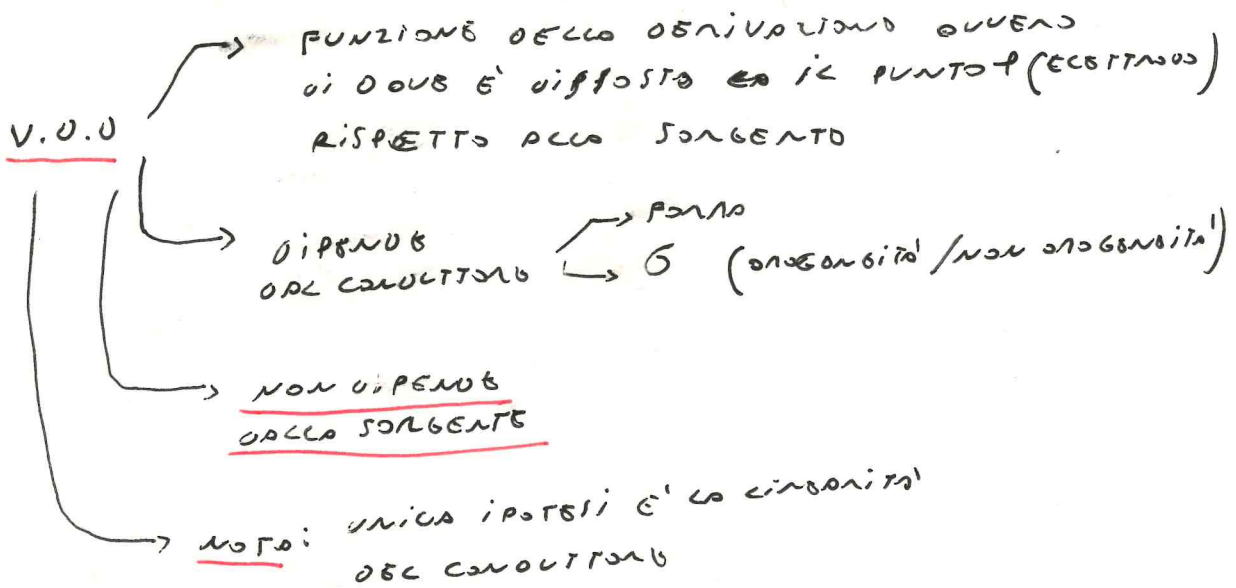 V.D.D
FUNZIONE DELLA DERIVAZIONE OVVERO
DI DOVE È DISPOSTO IL PUNTO P (ELETTRODO)
RISPETTO ALLA SORGENTE
DIPENDE
DAL CONDUTTORE
FORMA
σ (OMOGENEITÀ / NON OMOGENEITÀ)
NON DIPENDE
DALLA SORGENTE
NOTA: UNICA IPOTESI E' LA LINEARITA'
DEL CONDUTTORE